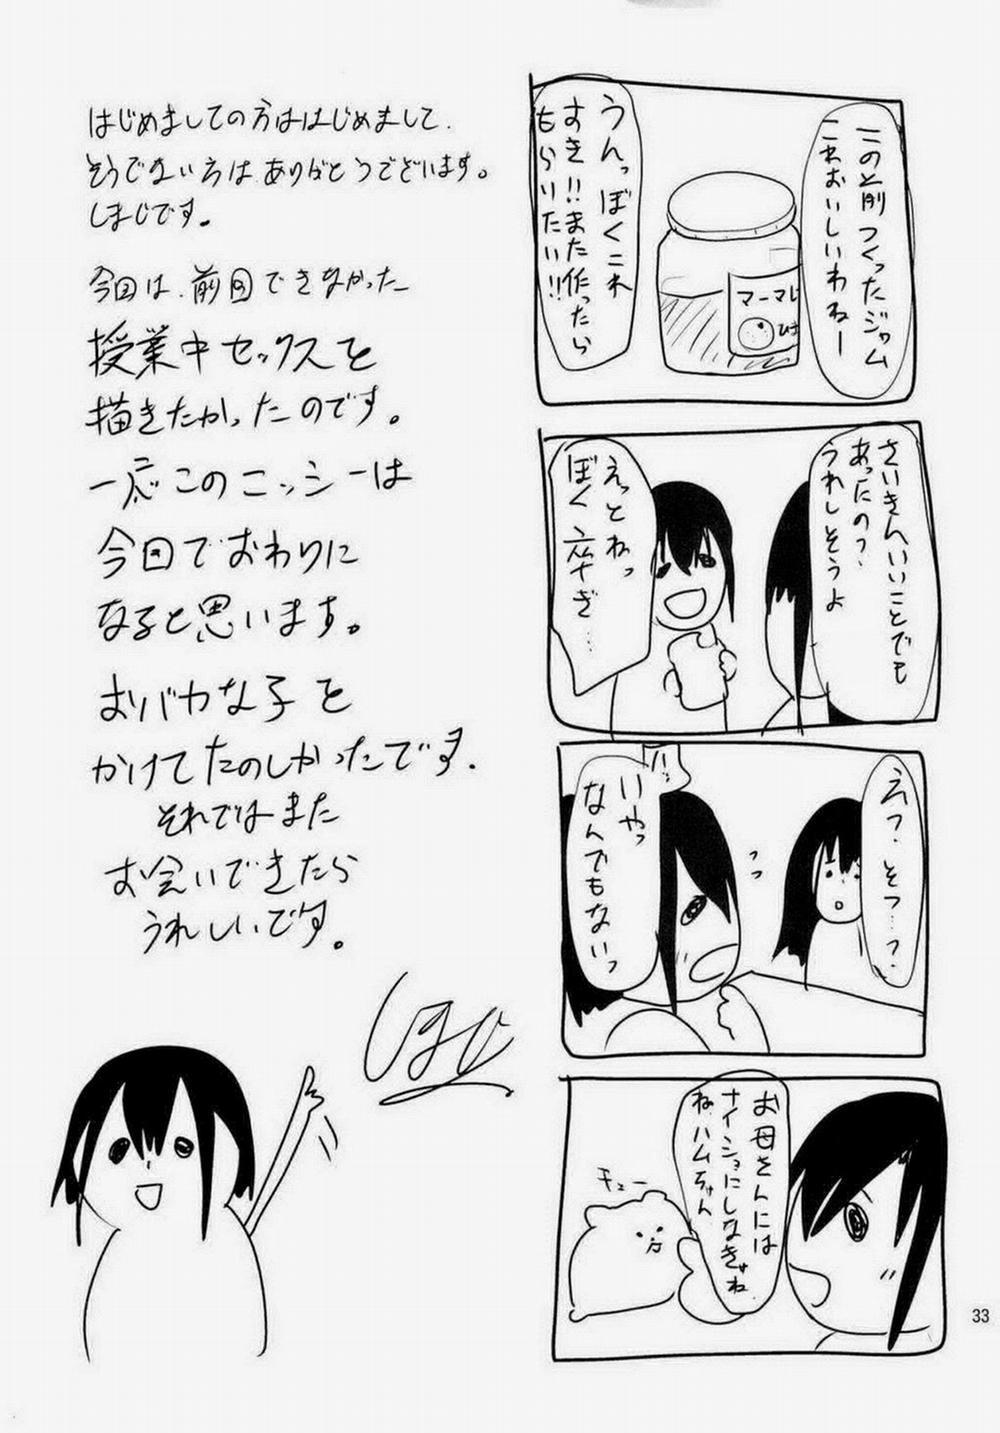 この前つくったジャム
これおいしいわねー
マーマレ
うんっぼくこれ
すき!!また作ったら
もらいたい!!
さいきんいいことでも
あったの?
うれしそうよ
えっとねっ
ぼく
えっ、そっ…?
いやっ
なんでもないっ
お母さんには
ナイショにしなきゃね
ね、ハムちゃん
チュー
はじめましての方ははじめまして、
そうでない方はありがとうございます。
しまじです。
今回は、前回できなかった
授業中セックスを
描きたかったのです。
一応このニッシーは
今回でおわりに
なると思います。
おバカな子を
かけてたのしかったです。
それではまた
お会いできたら
うれしいです。
33